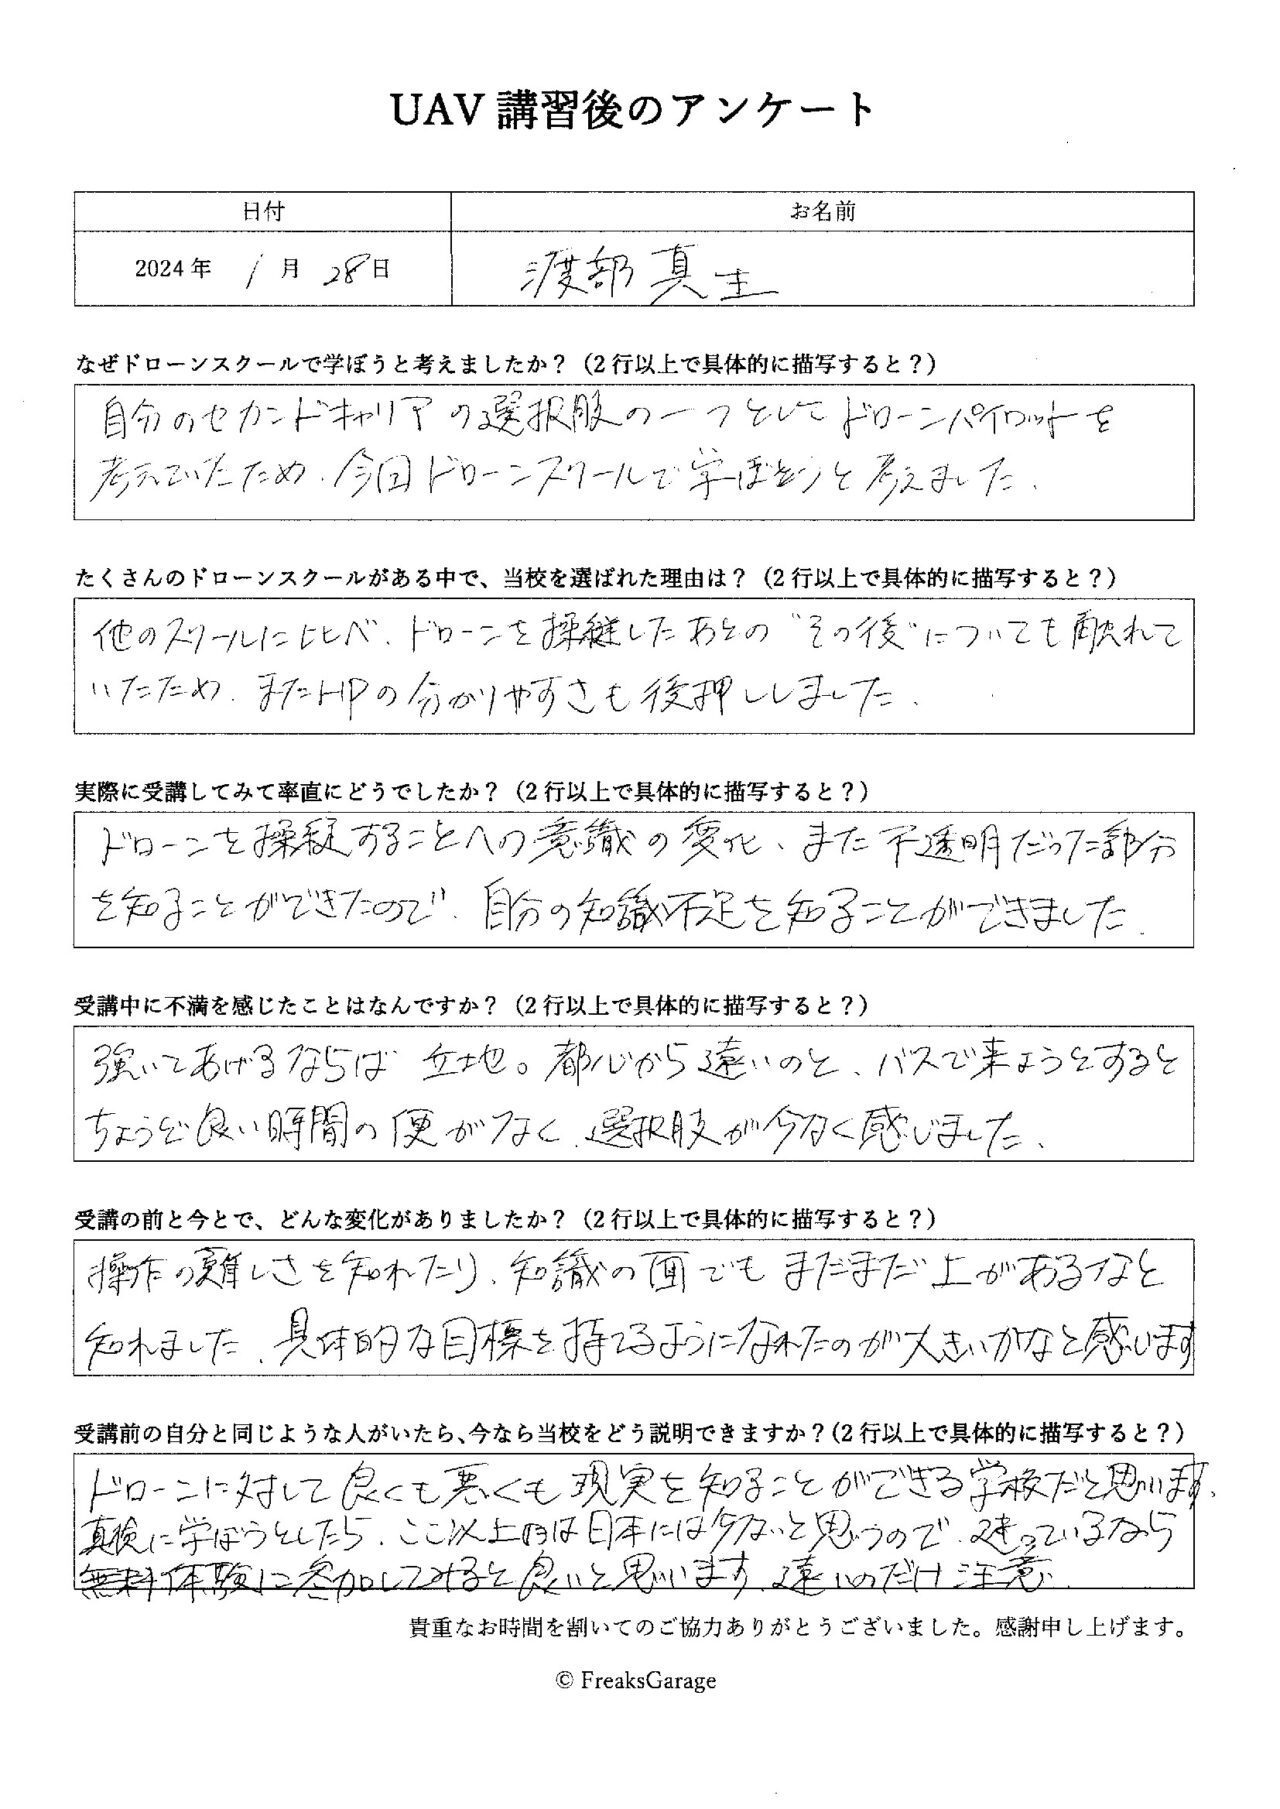 UAV 講習後のアンケート
日付 お名前
2024年 1月 28日 渡部 真生
なぜドローンスクールで学ぼうと考えましたか？（2行以上で具体的に描写すると？）
自分のセカンドキャリアの選択肢の一つとしてドローンパイロットを
考えていたため、今回ドローンスクールで学ぼうと考えました、
たくさんのドローンスクールがある中で、当校を選ばれた理由は？（2行以上で具体的に描写すると？）
他のスクールに比べ、ドローンを操縦したあとの"その後"についても触れて
いたため、またHPの分かりやすさも後押ししました、
実際に受講してみて率直にどうでしたか？（2行以上で具体的に描写すると？）
ドローンを操縦することへの意識の変化、また不透明だった部分
を知ることができたので、自分の知識不足を知ることができました、
受講中に不満を感じたことはなんですか？（2行以上で具体的に描写すると？）
強いてあげるならば 立地。都心から遠いのと、バスで来ようとすると
ちょうど良い時間の便がなく、選択肢が少なく感じました、
受講の前と今とで、どんな変化がありましたか？（2行以上で具体的に描写すると？）
操作の難しさを知れたり、知識の面でもまだまだ上があるなと
知れました、具体的な目標を持てるようになれたのが大きいかなと感じます
受講前の自分と同じような人がいたら、今なら当校をどう説明できますか？（2行以上で具体的に描写すると？）
ドローンに対して良くも悪くも現実を知ることができる学校だと思います、
真検に学ぼうとしたら、ここ以上は日本には少ないと思うので、迷っているなら
無料体験に参加してみると良いと思います、遠いのだけ注意、
貴重なお時間を割いてのご協力ありがとうございました。感謝申し上げます。
© FreaksGarage